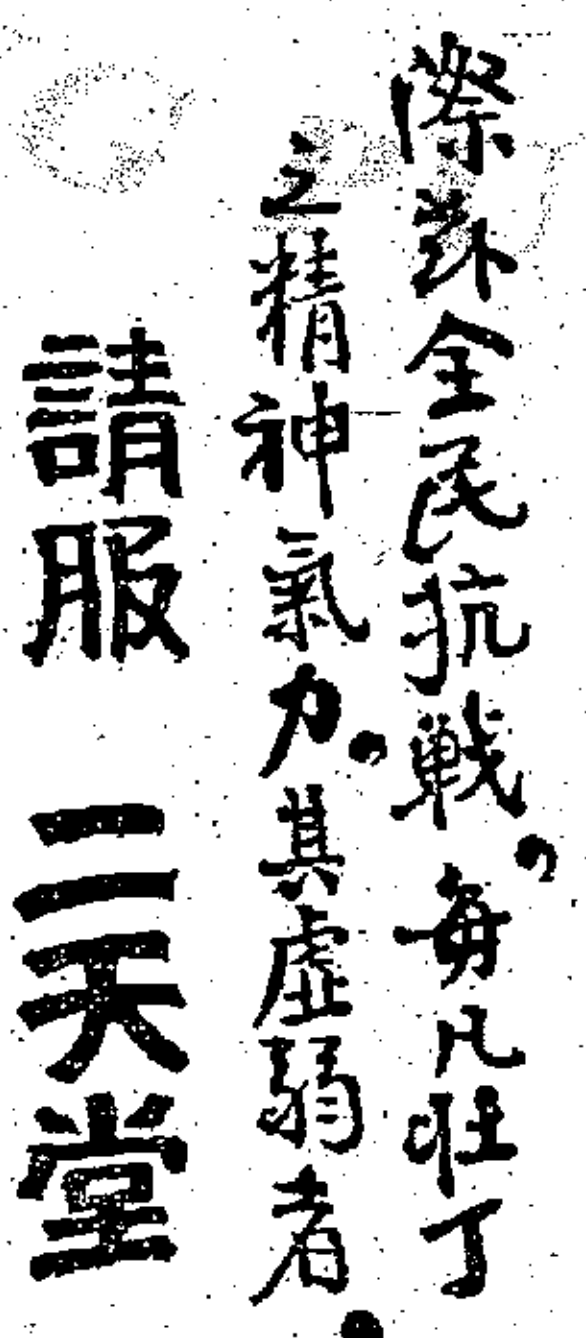 際對全民抗戰,每凡壯丁
之精神氣力,其虛弱者,
請服 二天堂